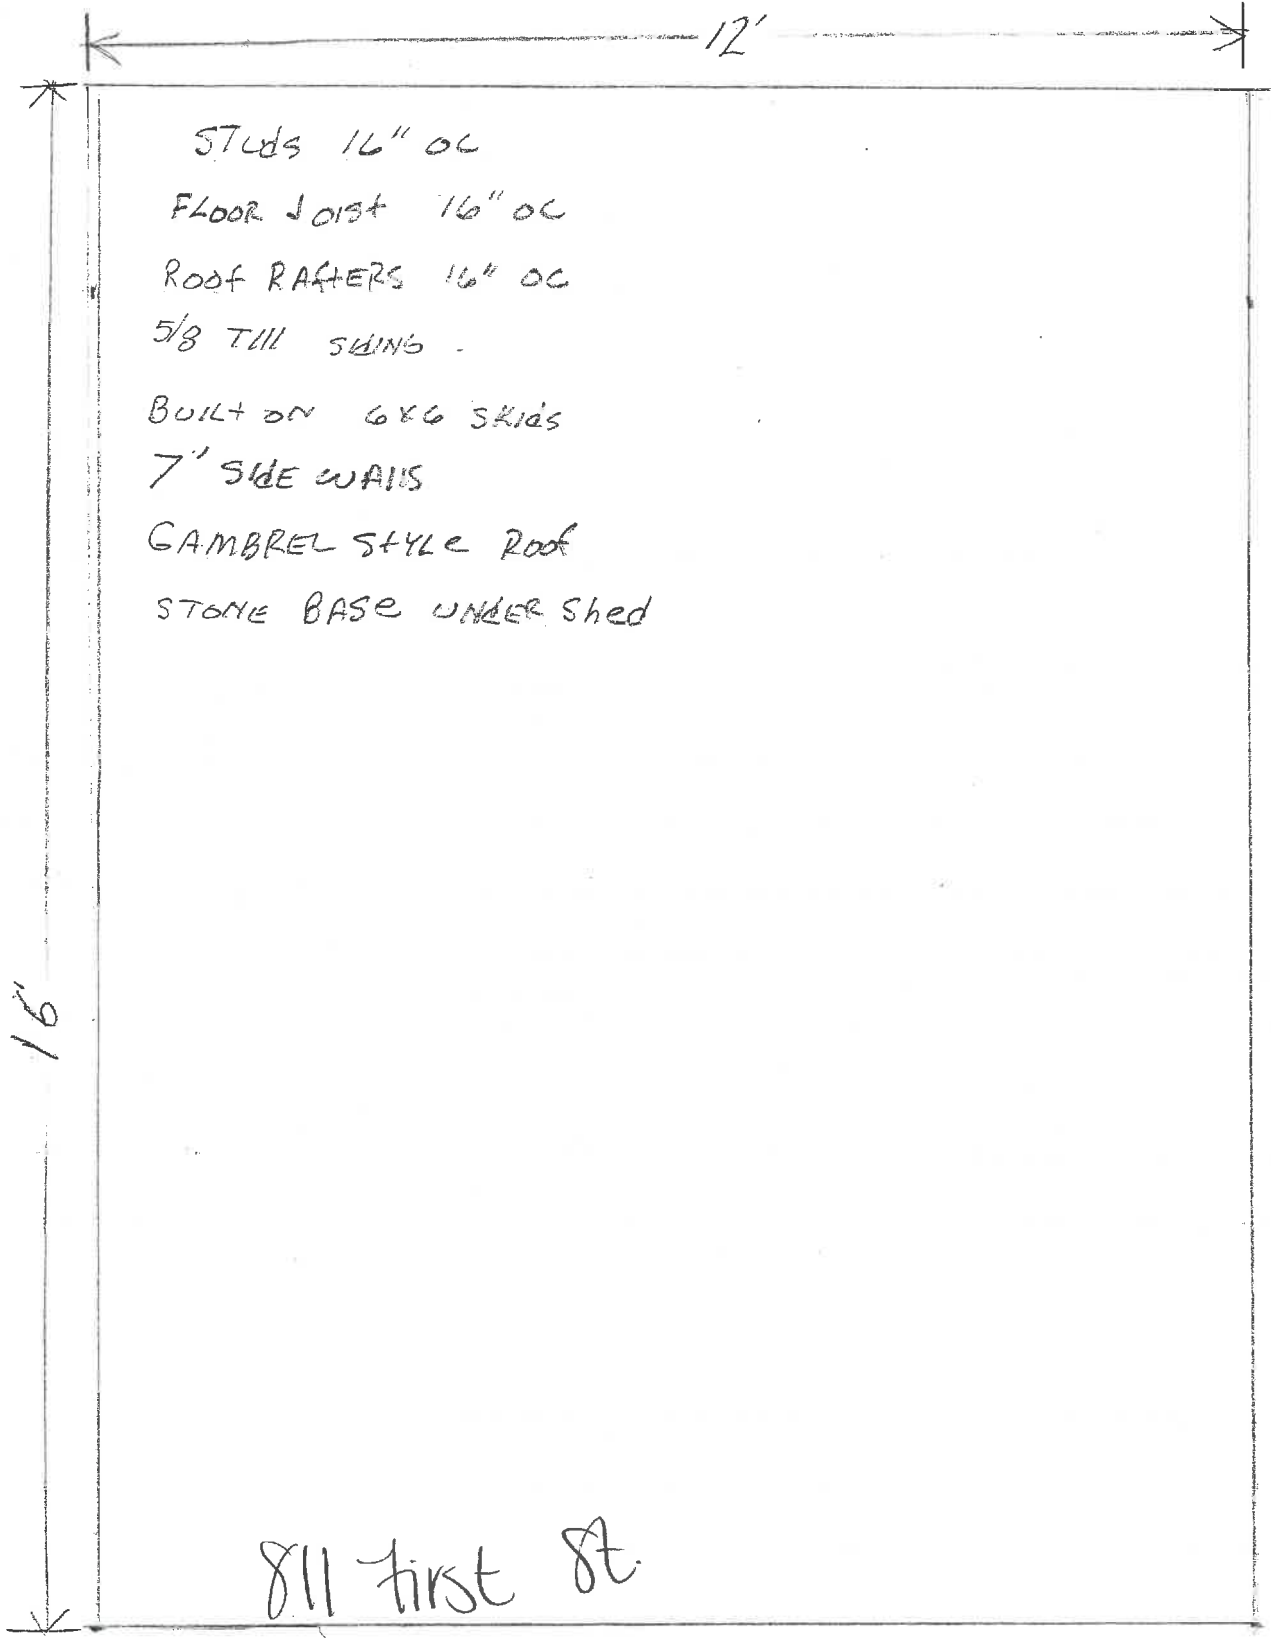 12'
STUds 16" OC
FLOOR JOISt 16" OC
Roof RAftERS 16" OC
5/8 T111 SIdING
BUILt ON 6x6 SKIdS
7' SIdE WAllS
GAMBREL StYLe Roof
STONE BASe UNdER Shed
16'
811 First St.